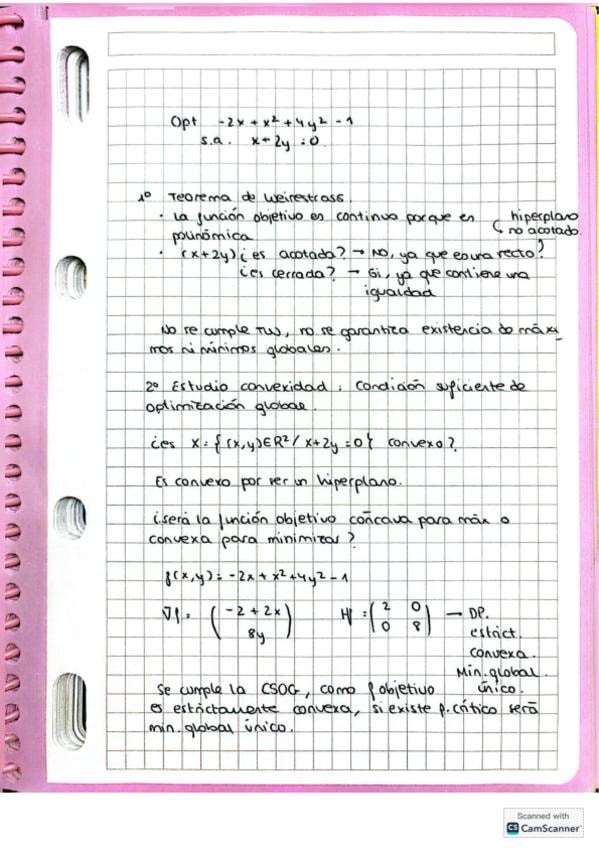 Opt -2x + x² + 4y² - 1
s.a. x + 2y = 0
1º Teorema de Weirestrass.
· La función objetivo es continua porque es polinómica
hiperplano no acotado.
· (x+2y) ¿es acotada? → No, ya que es una recta!
¿es cerrada? → Si, ya que contiene una
igualdad
No se cumple TW, no se garantiza existencia de máxi
mos ni mínimos globales.
2º Estudio convexidad: condición suficiente de
optimización global.
¿es X = {(x,y)∈R² / x+2y=0} convexo?
Es convexo por ser un hiperplano.
¿será la función objetivo cóncava para máx o
convexa para minimizar?
f(x,y) = -2x + x² + 4y² - 1
∇f = (-2 + 2x
8y)
Hf = (2 0
0 8) → DP.
estrict.
convexa.
Min. global
único.
Se cumple la CSOG, como f objetivo
es estrictamente convexa, si existe p. crítico será
min. global único.
Scanned with
CS CamScanner